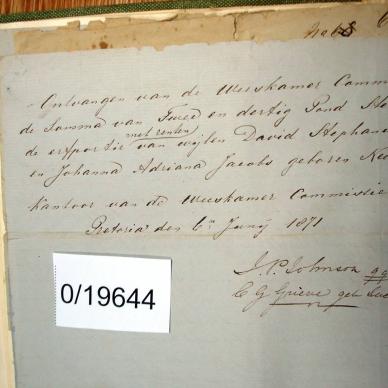 Ontvangen van de Weeskamer Comm
de Somma van Twee en dertig Pond
met renten
de erfportie van wijlen David Stephan
en Johanna Adriana Jacobs geboren
Kantoor van de Weeskamer Commissie
Pretoria den 6en Junij 1871
J. P. Johnson
C G Grieve geb
0/19644